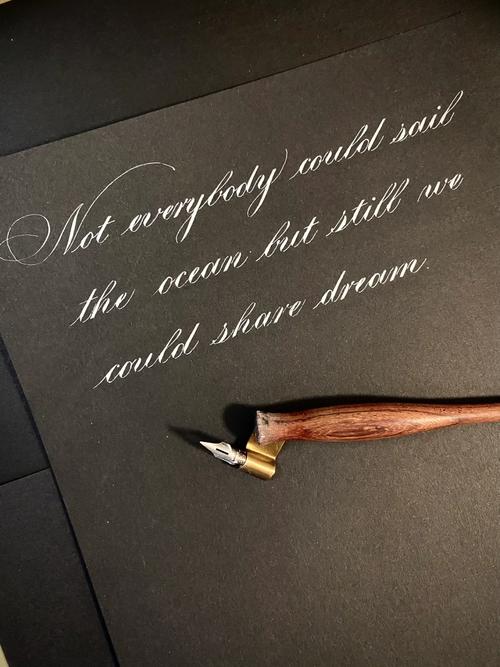 Not everybody could sail
the ocean but still we
could share dream.